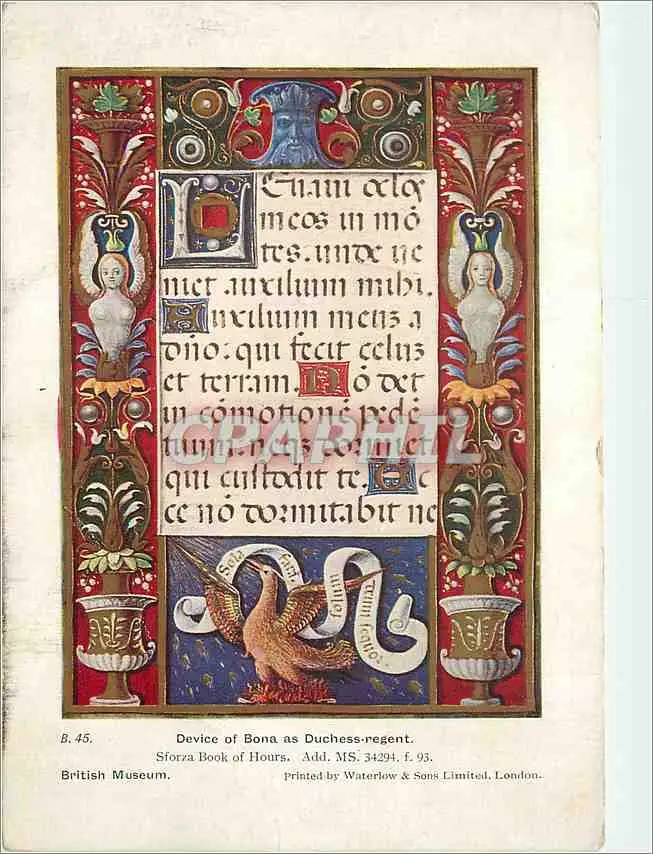 LEvavi ocl̄os
meos in mō
tes. unde ve
niet auxilium mihi.
Auxilium meuz a
dn̄o: qui fecit celuz
et terram. Nō det
in cōmotionē pedē
tuum: neqz dormiet
qui custodit te. Ec
ce nō dormitabit ne
Sola fata
nullum
deum sequor
CPAPHIL
B. 45.
Device of Bona as Duchess-regent.
Sforza Book of Hours. Add. MS. 34294. f. 93.
British Museum.
Printed by Waterlow & Sons Limited, London.